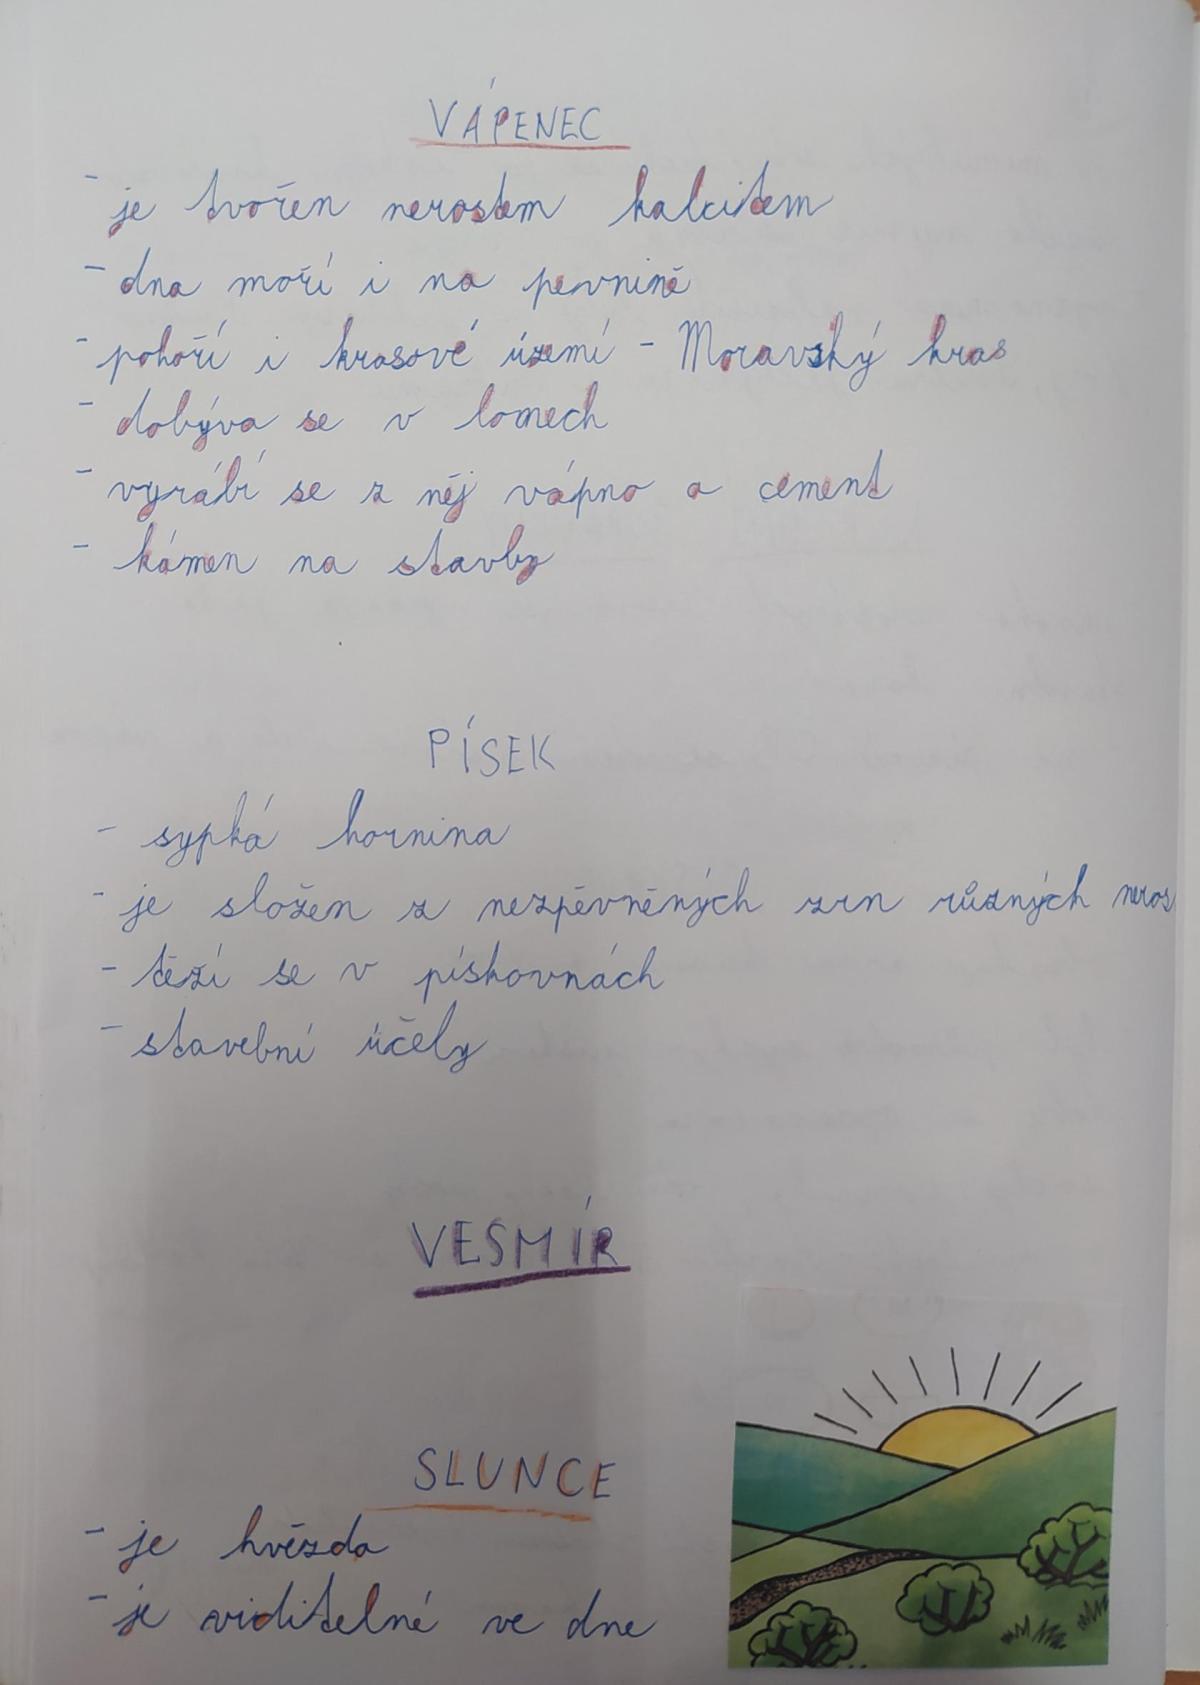 VÁPENEC
- je tvořen nerostem kalcitem
- dna moří i na pevnině
- pohoří i krasové území - Moravský kras
- dobýva se v lomech
- vyrábí se z něj vápno a cement
- kámen na stavby
PÍSEK
- sypká hornina
- je složen z nezpěvněných zrn různých neros
- těží se v pískovnách
- stavební účely
VESMÍR
SLUNCE
- je hvězda
- je viditelné ve dne